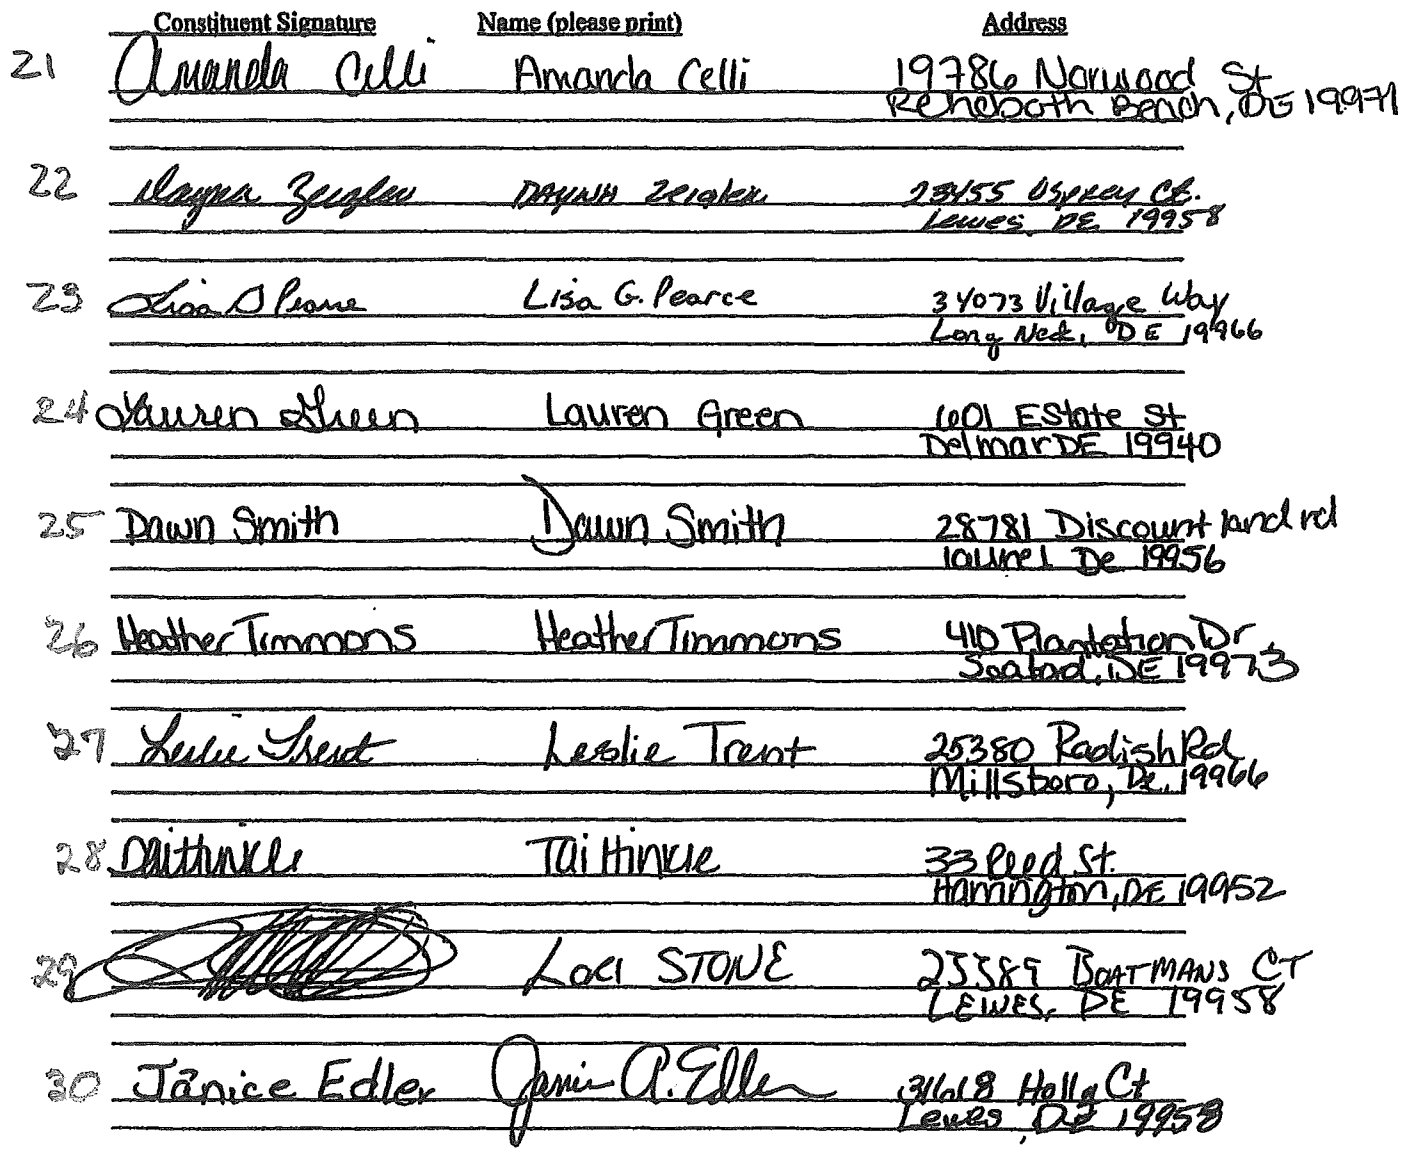 Constituent Signature Name (please print) Address
21 Amanda Celli Amanda Celli 19786 Norwood St
Rehoboth Beach, DE 19971
22 Dayna Zeigler DAYNA Zeigler 23455 Osprey Ct.
Lewes, DE 19958
23 Lisa G Pearce Lisa G. Pearce 34073 Village Way
Long Neck, DE 19966
24 Lauren Green Lauren Green 601 E State St
Delmar DE 19940
25 Dawn Smith Dawn Smith 28781 Discount land rd
laurel De 19956
26 Heather Timmons Heather Timmons 410 Plantation Dr
Seaford, DE 19973
27 Leslie Trent Leslie Trent 25380 Radish Rd
Millsboro, De. 19966
28 Tai Hinkle 33 Reed St.
Harrington, DE 19952
29 Lori STONE 23389 BOATMANS CT
LEWES, DE 19958
30 Janice Edler Janice A. Edler 31618 Holly Ct
Lewes, DE 19958